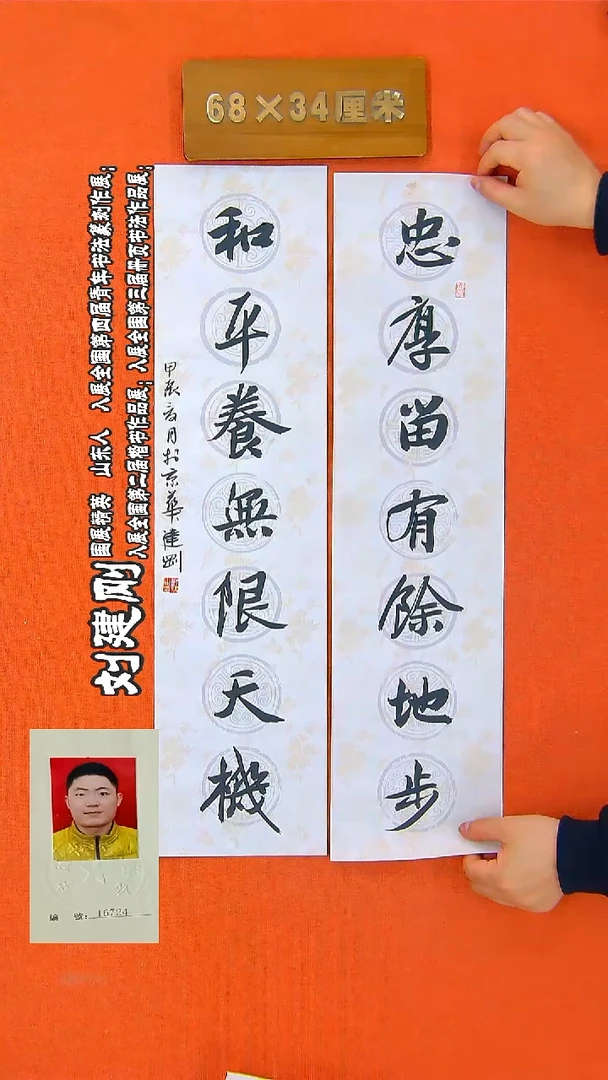 68×34厘米
忠厚留有餘地步
和平養無限天機
甲辰夏月於京華建剛
刘建刚
国展精英 山东人 入展全国第四届青年书法篆刻作展；
入展全国第二届楷书作品展；入展全国第三届册页书法作品展；
編 號：16724